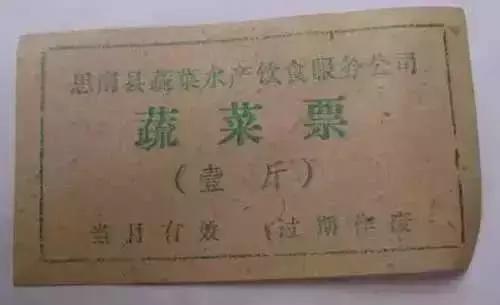 思南县蔬菜水产饮食服务公司
蔬菜票
（壹斤）
当月有效 过期作废